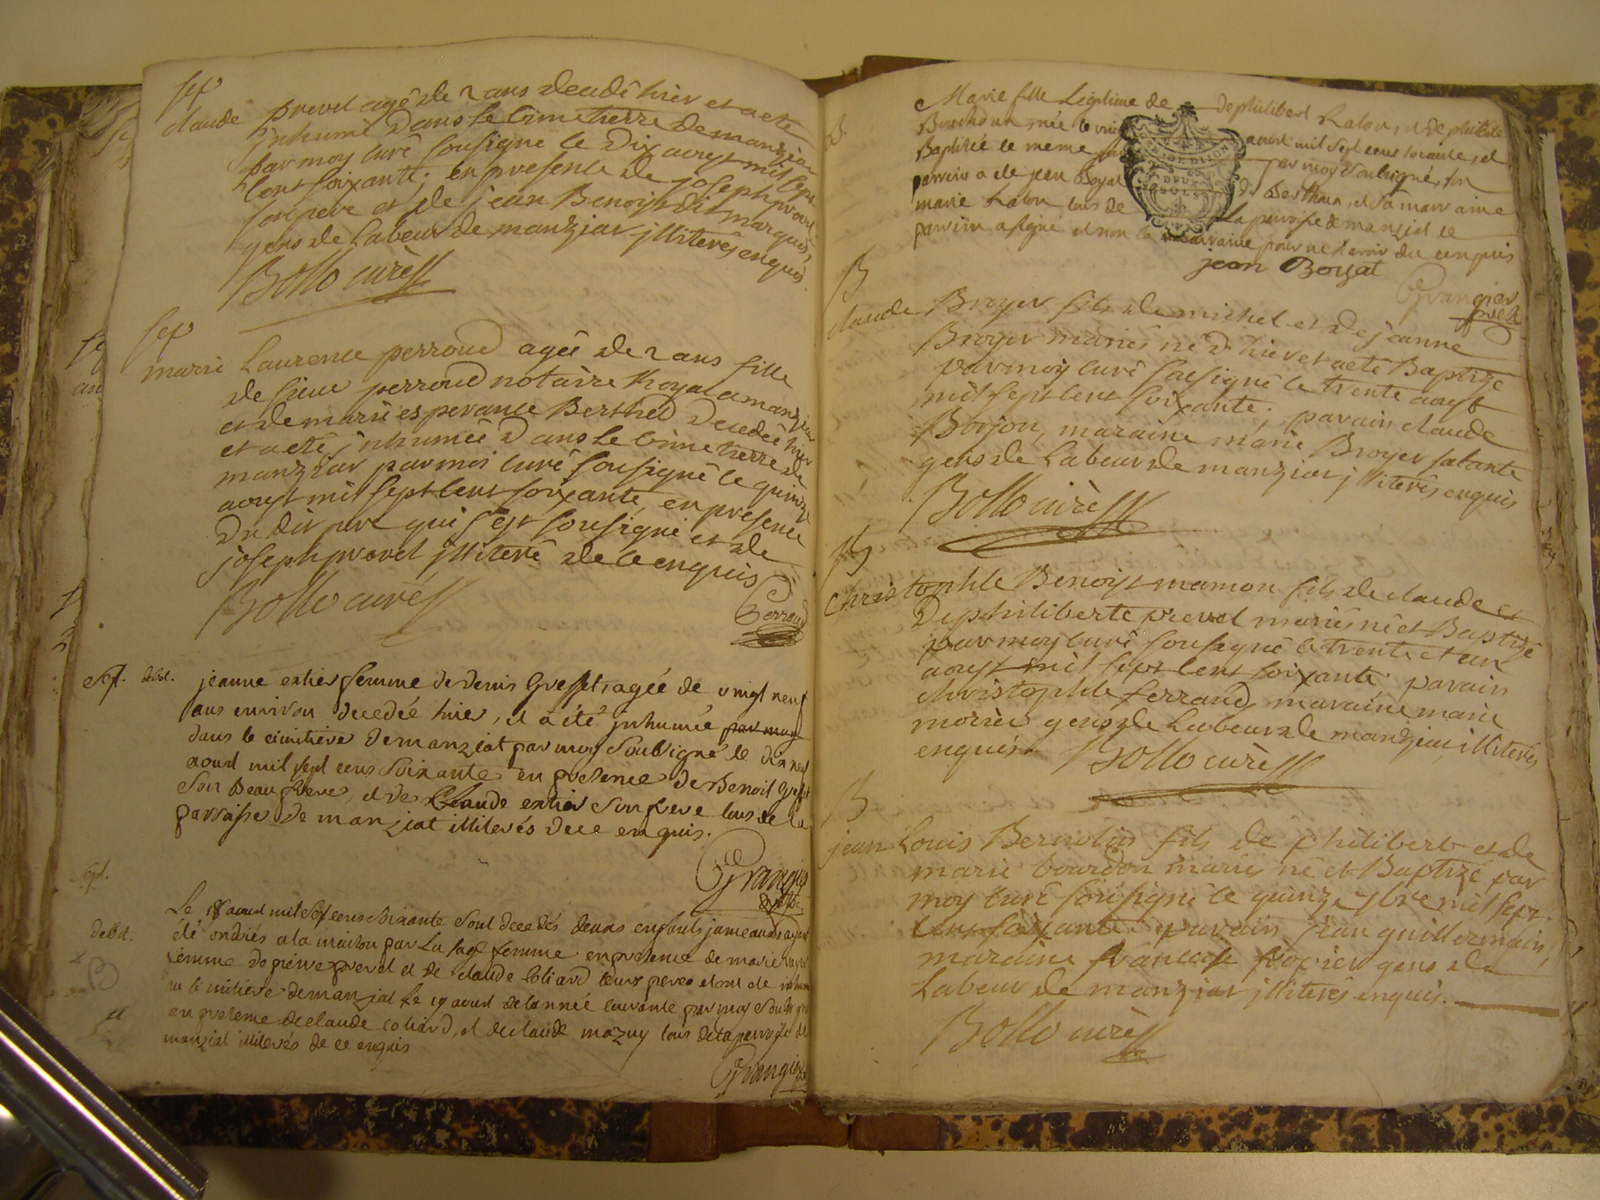 sep
claude prevel agé de 2 ans decedé hier et a eté
jnhumé dans le cimetierre de manziat
par moy curé sousigné le dix aoust mil sept
cent soixante; en presence de joseph prevel
son pere et de jean Benoist dit marquis,
gens de labeur de manziat jlliterés enquis.
Bollo curé
sep
marie Laurence perroud agée de 2 ans fille
de sieur perroud notaire Royal a manziat
et de marie esperance Berthed decedée hier
et a eté jnhumée dans le cimetierre de
manziat par moi curé sousigné le quinze
aoust mil sept cent soixante, en presence
du dit pere qui s'est sousigné et de
joseph prevel jlliteré de ce enquis
Bollo curé
Perroud
Sep. debit. jeanne entier femme de denis Greffet agée de vingt neuf
ans environ decedée hier, et a été jnhumée par moy
dans le cimitiere de manziat par moy soussigné le dix neuf
aoust mil sept cens soixante en presence de Benoit Greffet
son Beaufrere, et de Claude entier son frere tous de la
parroisse de manziat illiterés de ce enquis.
Grangier
Sep.
debit.
Le 18 aoust mil sept cens soixante sont decedés deux enfants jumeaux ayant
été ondoiés a la maison par la sage femme en presence de marie
femme de pierre prevel et de claude Coliard leurs peres et ont été
au cimitiere de manziat le 19 aoust de l'année courante par moy
en presence de claude coliard, et de claude mazuy tous de la parroisse de
manziat illiterés de ce enquis
Grangier
B.
Marie fille Legitime de de philibert Laton, et de philiberte
Bourdon, née le aoust mil sept cens soixante, et
Baptisée le meme par moy soussigné, son
parrain a été jean Boyat de Bertheu, et sa marraine
marie Laton tous de la parroisse de manziat le
parrain a signé et non la marraine pour ne scavoir de ce enquis
jean Boyat
Grangier
B
claude Broyer fils de michel et de jeanne
Broyer mariés né d'hier et a eté Baptizé
par moy curé sousigné le trente aoust
mil sept cent soixante; parain claude
Borjon, maraine marie Broyer sa tante
gens de labeur de manziat jlliterés enquis
Bollo curé
B
Christophle Benoist mamon fils de claude et
de philiberte prevel mariés né et Baptizé
par moy curé sousigné le trente et un
aoust mil sept cent soixante parain
christophle ferrand, maraine marie
morier gens de labeur de manziat jlliterés
enquis. Bollo curé
B
jean Louis Berardod fils de philibert et de
marie bourdon mariés né et Baptizé par
moy curé sousigné le quinze 7bre mil sept
cent soixante parain jean guillermain,
maraine francoise fevrier gens de
labeur de manziat jlliterés enquis.
Bollo curé